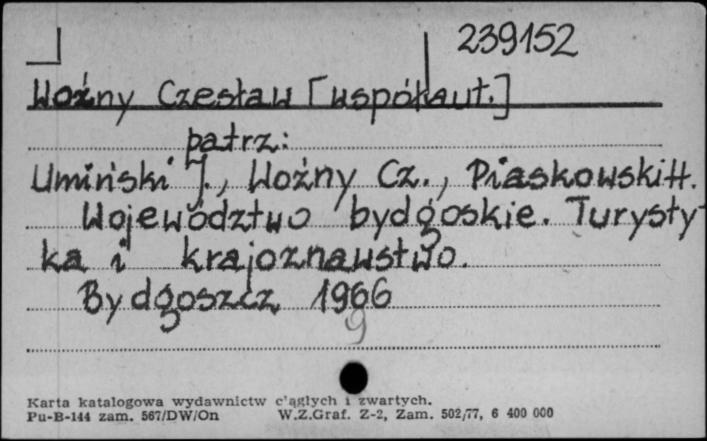 239152
Woźny Czesław [współaut.]
patrz:
Umiński J., Woźny Cz., Piaskowski H.
Województwo bydgoskie. Turysty-
ka i krajoznawstwo.
Bydgoszcz 1966
9
Karta katalogowa wydawnictw c'ągłych i zwartych.
Pu-B-144 zam. 567/DW/On W.Z.Graf. Z-2, Zam. 502/77, 6 400 000